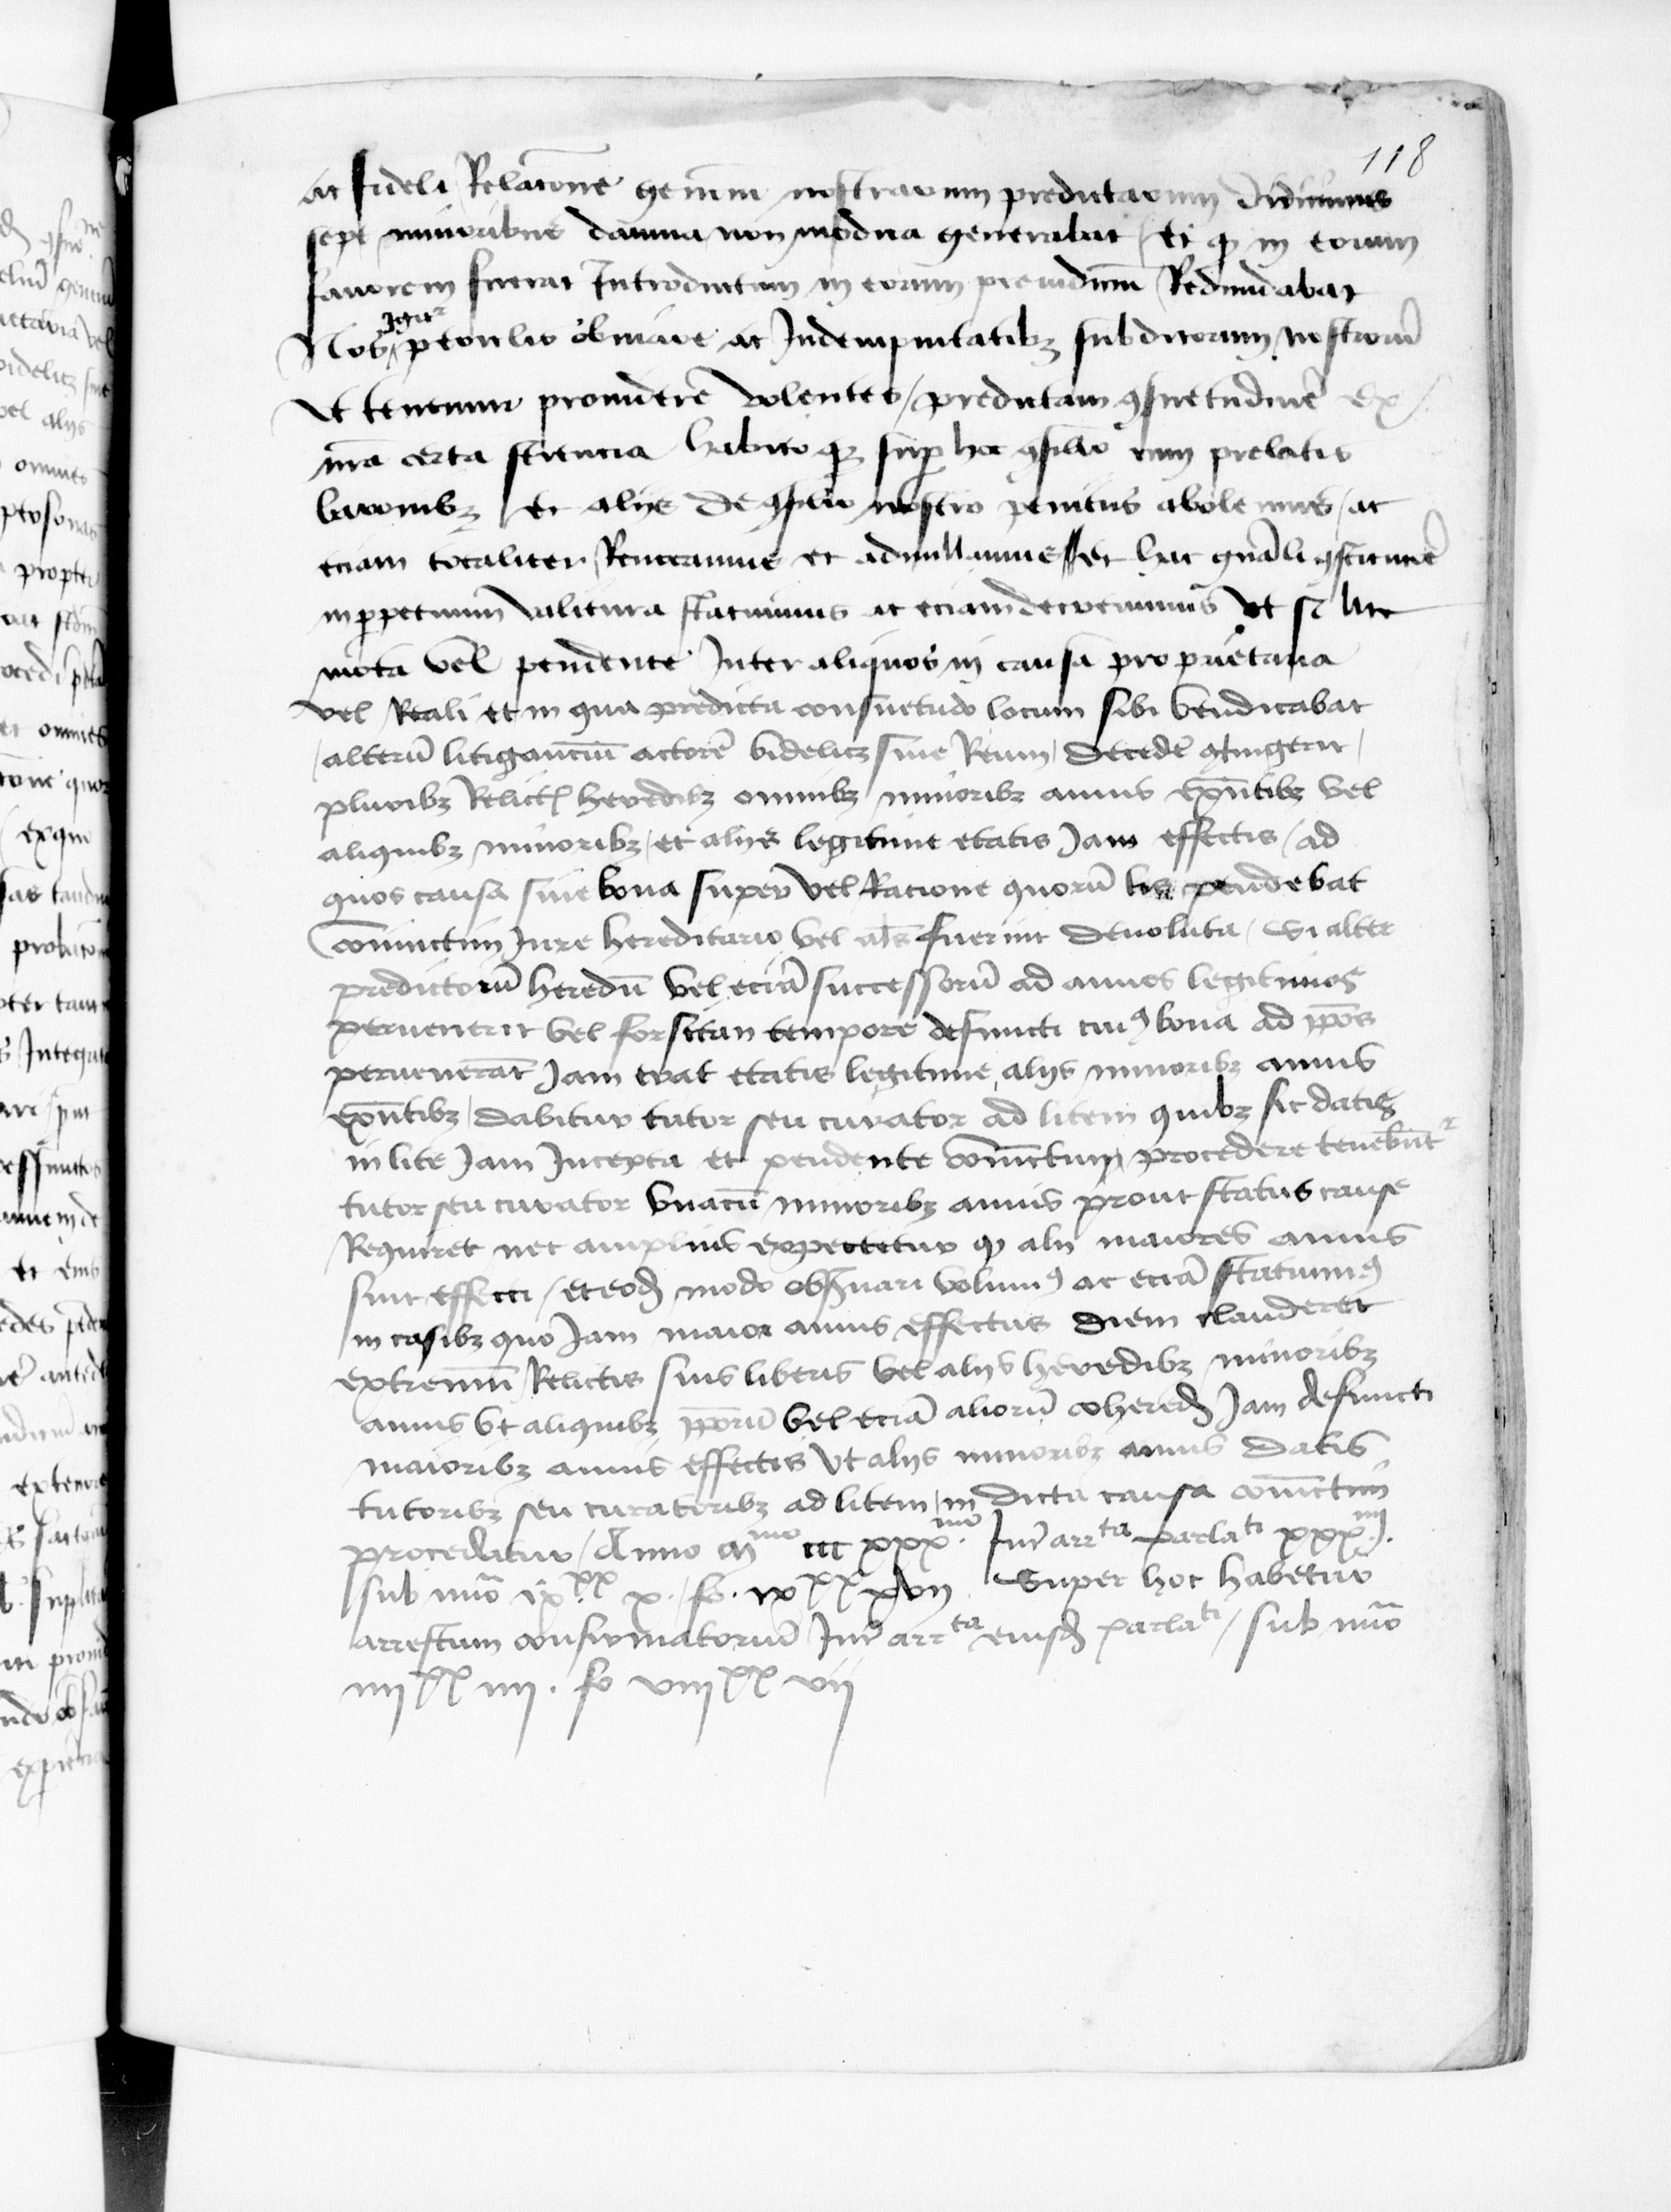 118
ac fideli Relacõne gencium nostrarum predictarum didicimus
sepe minoribus dampna non modica generabat / et q̃ in eorum
favorem fuerat Introductum in eorum preiudiciũ Redundabat
Nos Igitr periculis obviare ac Indempnitatibz subditorum nostrorũ
Ut tenemur providere volentes / predictam ꝯsuetudinẽ ex
nrã certa sciencia habito qz sup hoc ꝯsilio cum prelatis
baronibz et aliis de ꝯsilio nostro penitus abolemus / ac
eciam totaliter Revocamus et adnullamus et hac gnãli ꝯstitucõe
inperpetuum valitura statuimus ac eciam decrevimus Ut si lite
mota vel pendente Inter aliquos in causa proprietaria
vel Reali et in qua predicta consuetudo locum sibi vendicabat
alterũ litiganciũ actorẽ videlicz sive Reum / decedẽ ꝯtingerit /
pluribz Relict heredibz omnibz minoribz annis exñtibz vel
aliquibz minoribz / et aliis legitime etatis Jam effectis / ad
quos causa sive bona super vel Racione quorũ lis pendebat
coniunctim Jure hereditario vel als fuerint devoluta / Si alter
predictorũ heredũ vel eciã successorũ ad annos legitimos
pervenerit vel forsitan tempore defuncti cuiꝰ bona ad ipõs
pervenerãt Jam erat etatis legitime aliis minoribz annis
exñtibz / dabitur tutor seu curator ad litem quibz sic datis
in lite Jam Incepta et pendente coniũctim procedere tenebũtr
tutor seu curator unacũ minoribz annis prout status cause
Requiret nec amplius expectetur q̃ alii maiores annis
sint effecti / et eod modo observari volumꝰ ac eciã statuimꝰ
in casibz quo Jam maior annis effectus diem clauderet
extremũ Relictis suis liberis vel aliis heredibz minoribz
annis ut aliquibz ipõrũ vel eciã aliorũ cohered Jam defuncti
maioribz annis effectis Ut aliis minoribz annis datis
tutoribz seu curatoribz ad litem / in dicta causa coniũctim
procedatur / Anno mmo ccc xxxmo. Inr arrta parlati xxx.
sub nũo ixxx x. fo. ixxx xvii Super hoc habetur
arrestum confirmatoriũ Inr arrta eiusd parlati / sub nũo
iiiixx iiii. fo viiixx vii